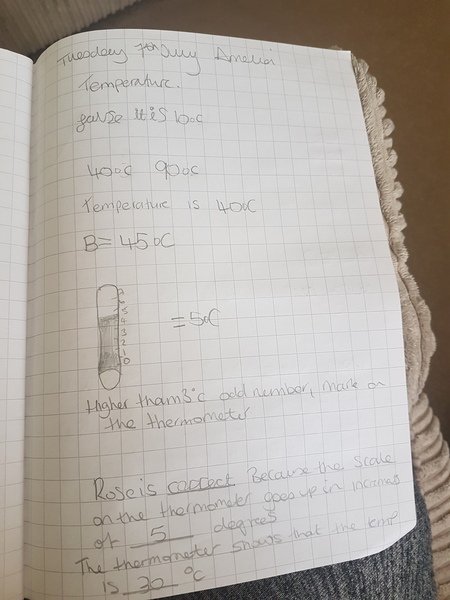 Tuesday 7th July Amelia
Temperature.
false it is 10°C
40°C 90°C
Temperature is 40°C
B = 45°C
7
6
5
4
3
2
1
0
= 5°C
Higher than 3°C odd number, mark on
the thermometer
Rose is correct Because the scale
on the thermometer goes up in
of 5 degrees
The thermometer shows that the temp
is 30 °C